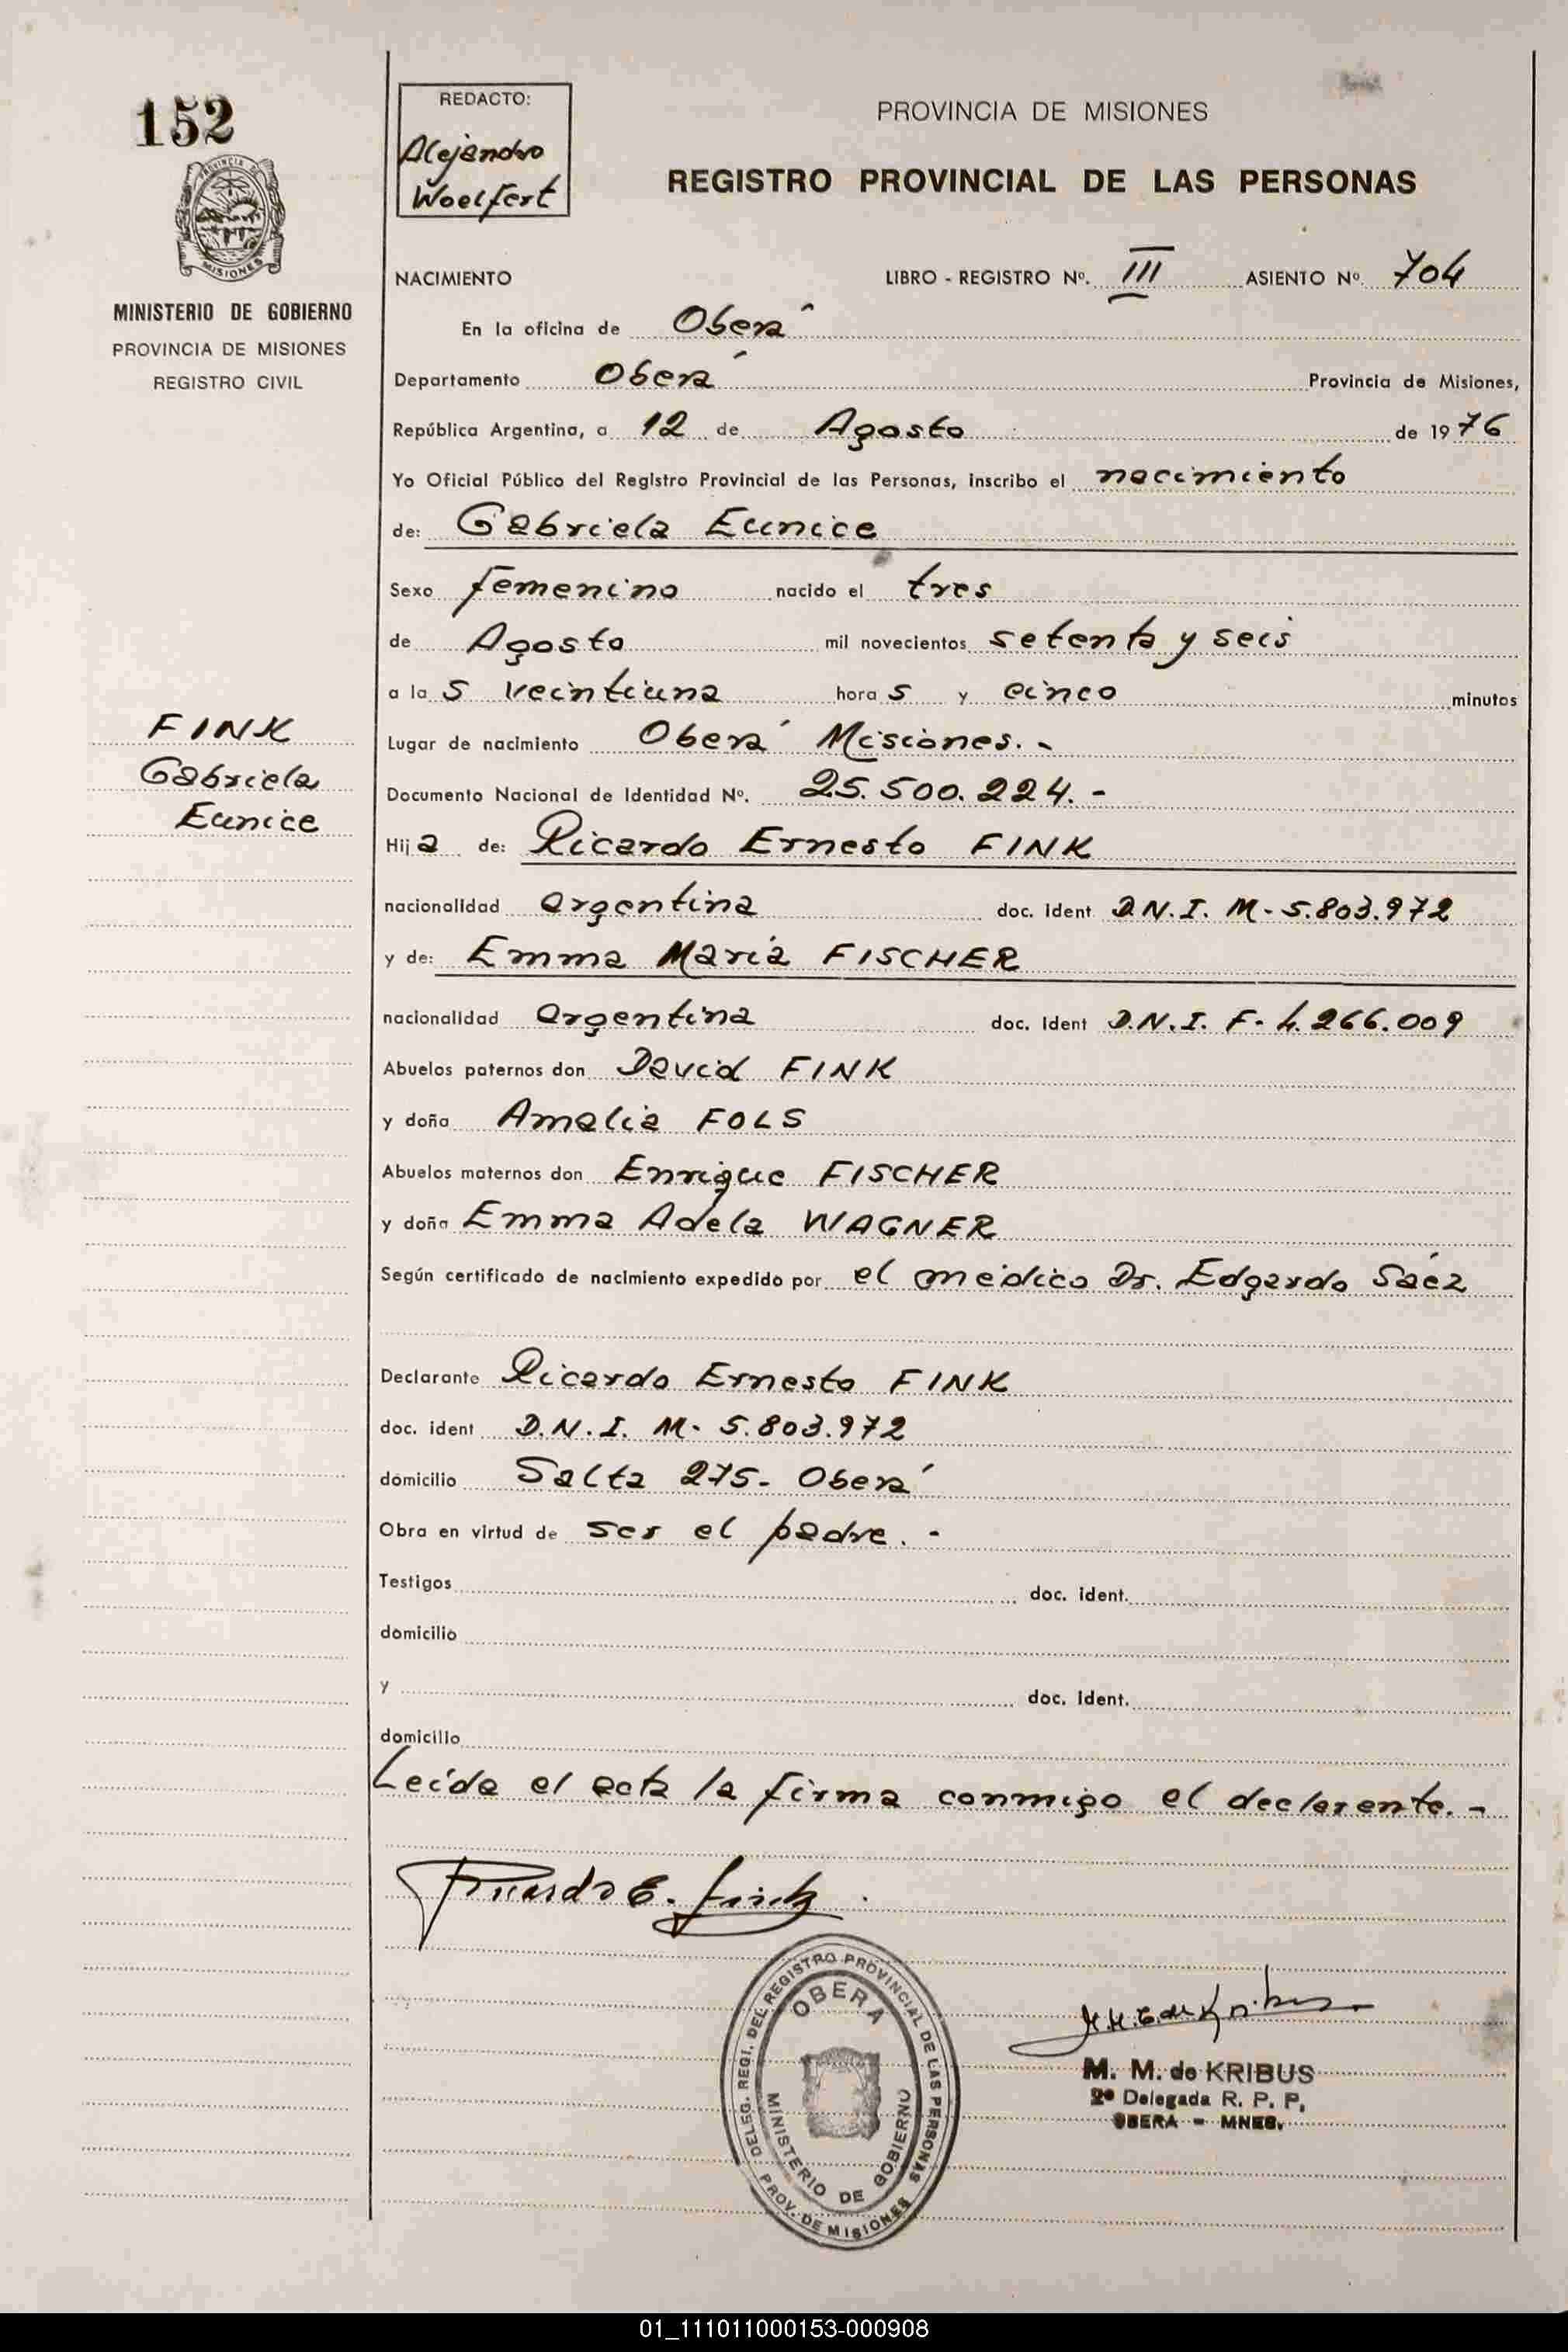 152
PROVINCIA DE
MISIONES
MINISTERIO DE GOBIERNO
PROVINCIA DE MISIONES
REGISTRO CIVIL
REDACTO:
Alejandro
Woelfert
PROVINCIA DE MISIONES
REGISTRO PROVINCIAL DE LAS PERSONAS
NACIMIENTO LIBRO - REGISTRO Nº. III ASIENTO Nº. 704
En la oficina de Oberá
Departamento Oberá Provincia de Misiones,
República Argentina, a 12 de Agosto de 1976
Yo Oficial Público del Registro Provincial de las Personas, inscribo el nacimiento
de: Gabriela Eunice
Sexo femenino nacido el tres
de Agosto mil novecientos setenta y seis
a la s veintiuna hora s y cinco minutos
FINK
Gabriela
Eunice
Lugar de nacimiento Oberá Misiones.-
Documento Nacional de Identidad Nº. 25.500.224.-
Hija de: Ricardo Ernesto FINK
nacionalidad argentina doc. ident D.N.I. M- 5.803.972
y de: Emma María FISCHER
nacionalidad argentina doc. ident D.N.I. F- 4.266.009
Abuelos paternos don David FINK
y doña Amalia FOLS
Abuelos maternos don Enrique FISCHER
y doña Emma Adela WAGNER
Según certificado de nacimiento expedido por el médico Dr. Edgardo Sáez
Declarante Ricardo Ernesto FINK
doc. ident D.N.I. M- 5.803.972
domicilio Salta 275- Oberá
Obra en virtud de ser el padre.-
Testigos doc. ident.
domicilio
y doc. ident.
domicilio
Leída el acta la firma conmigo el declarante.-
Ricardo E. Fink
DELEG. REGI. DEL REGISTRO PROVINCIAL DE LAS PERSONAS
OBERA
MINISTERIO DE GOBIERNO
PROV. DE MISIONES
M. M. de Kribus
M. M. de KRIBUS
2ª Delegada R. P. P.
OBERA - MNES.
01_111011000153-000908